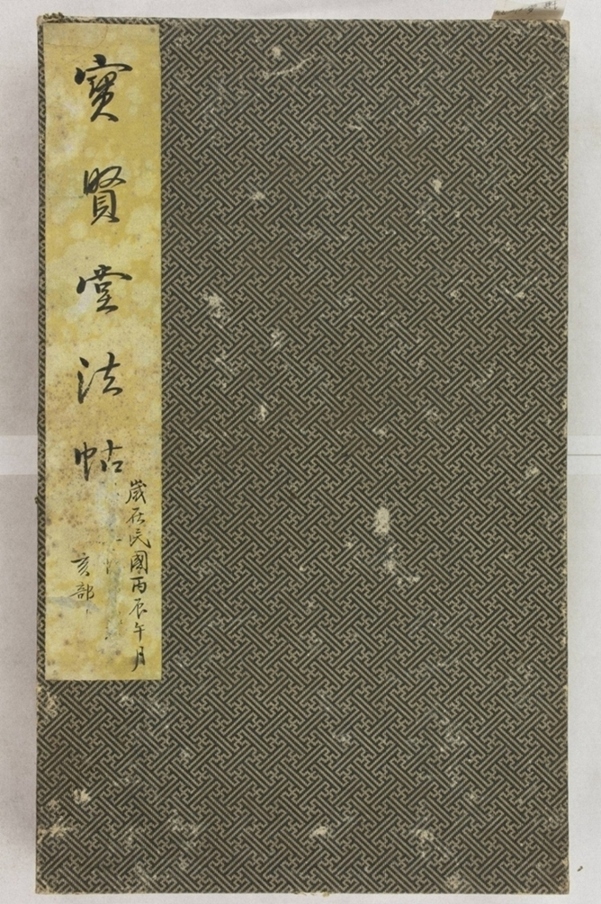 寳賢堂法帖
歲在民國丙辰午月
亥部